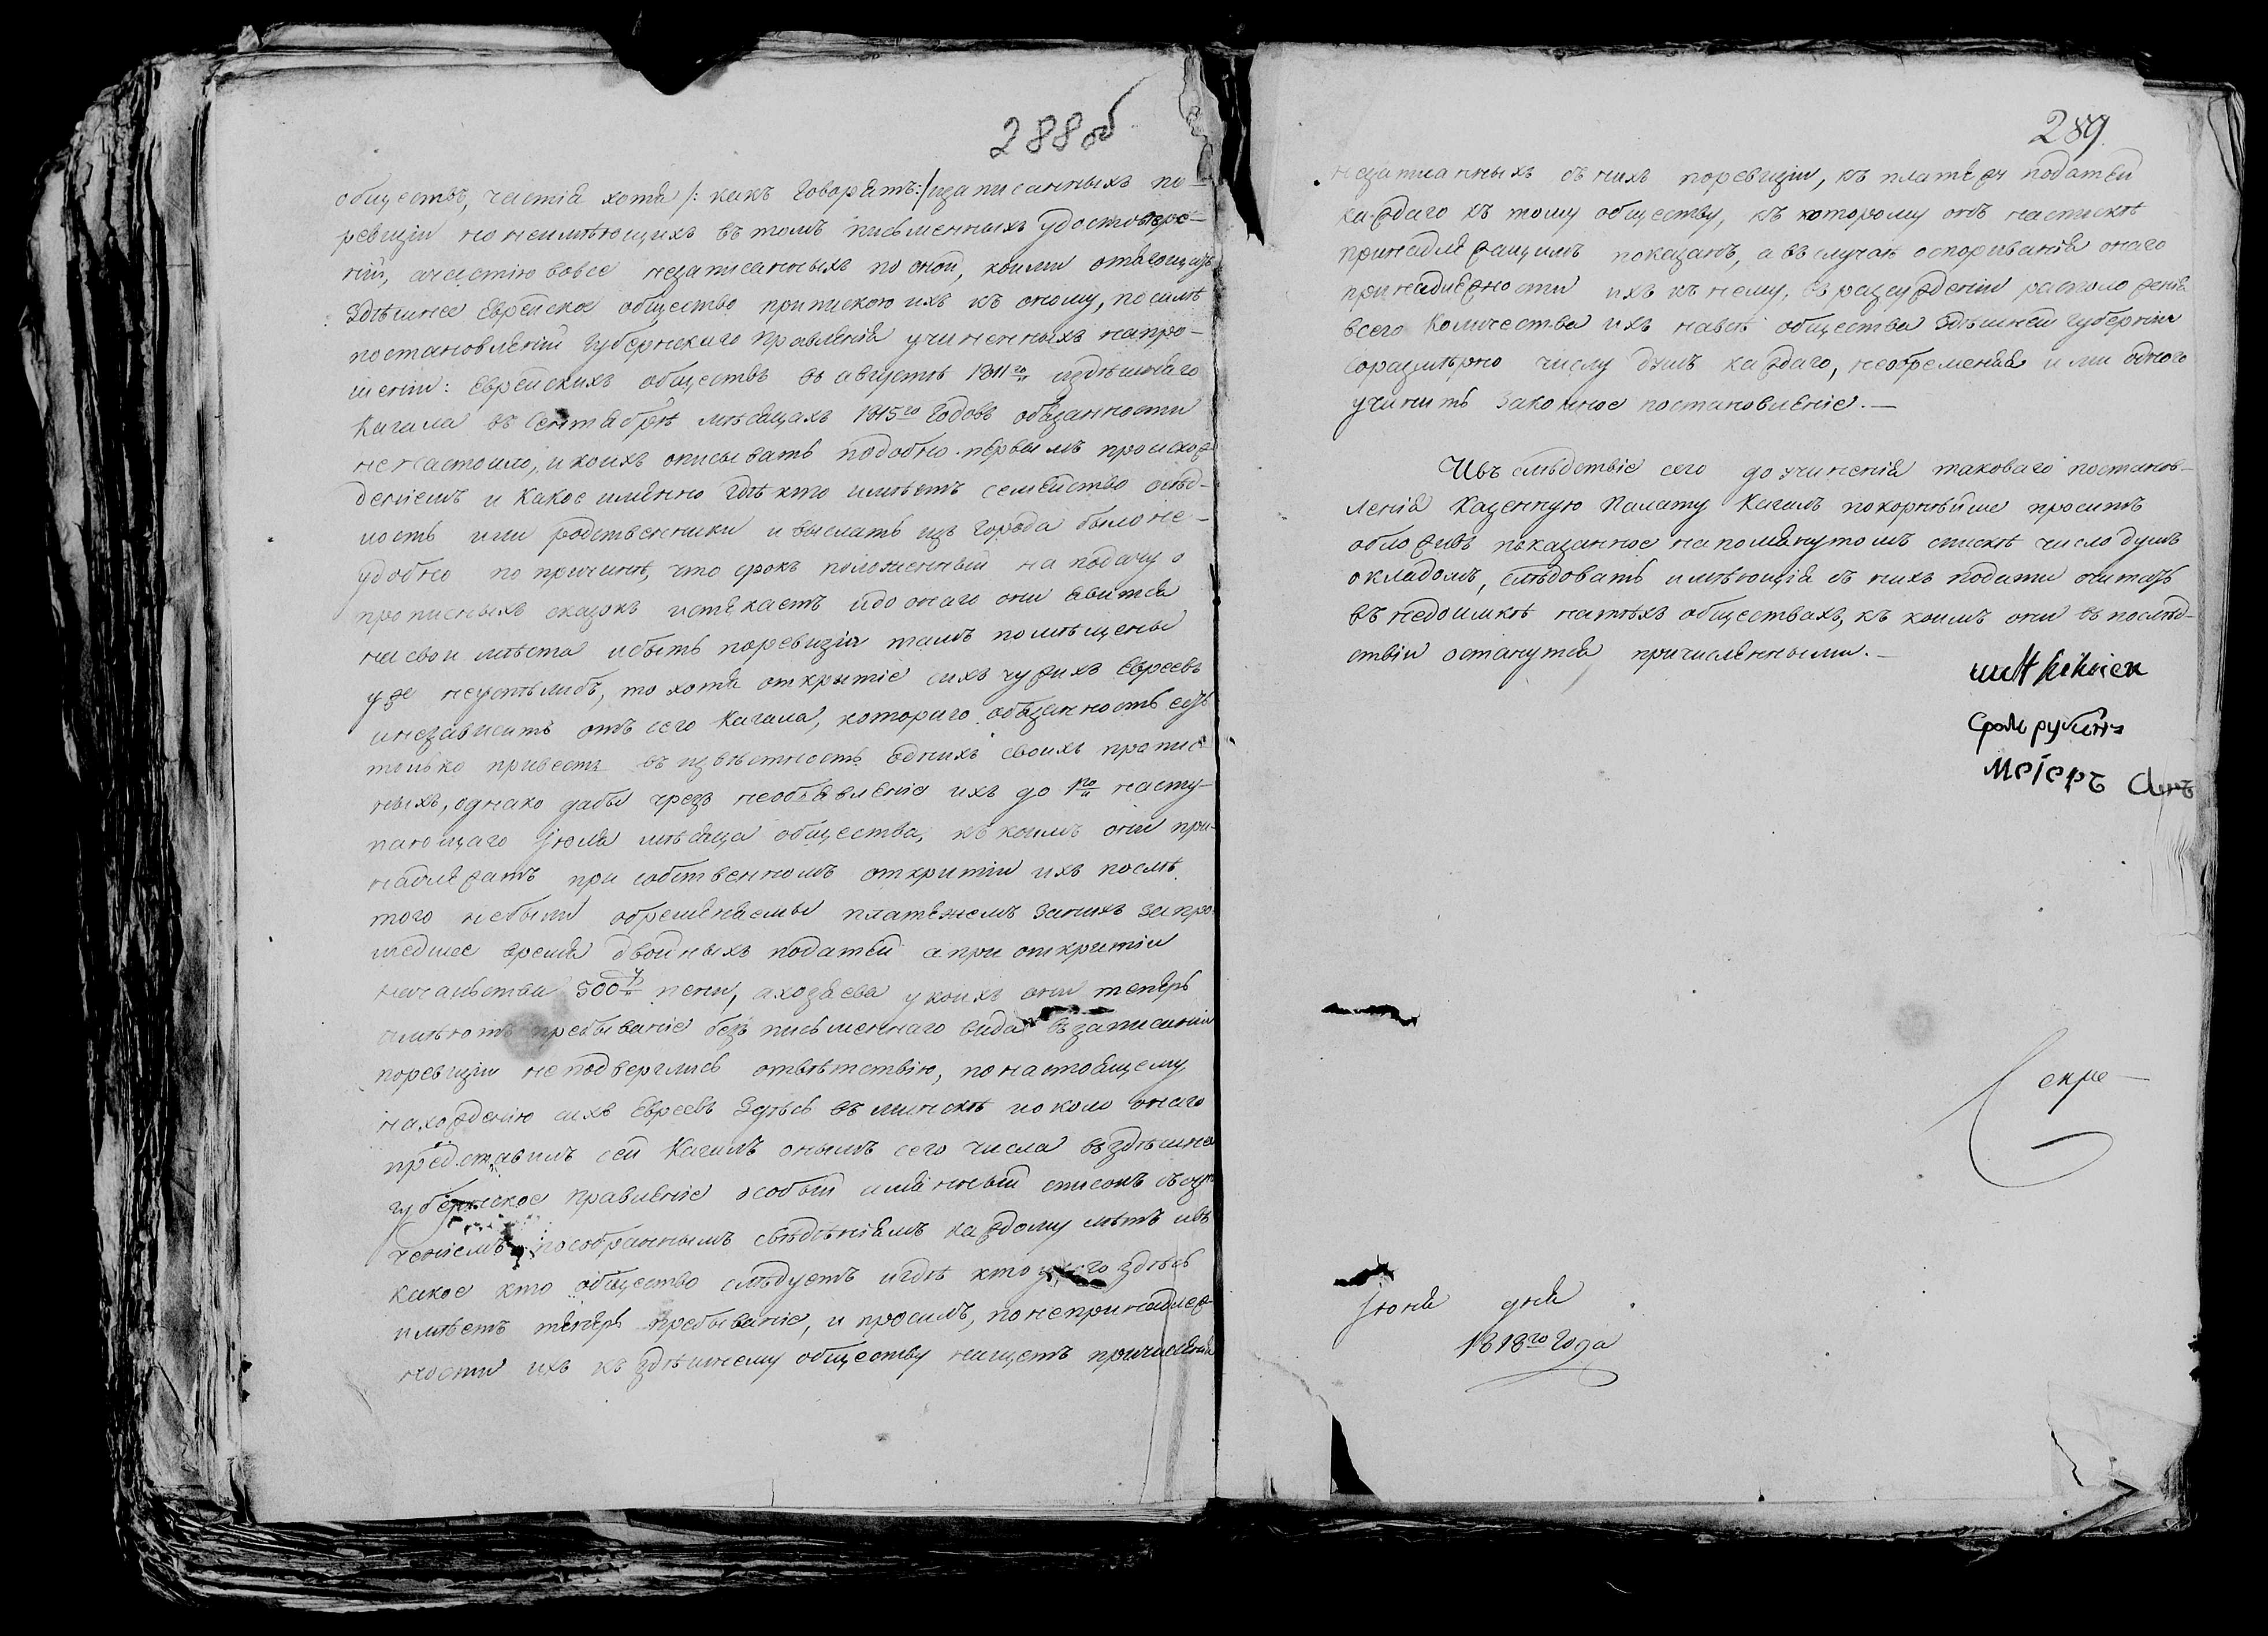 288об
обществъ, частiя хотя /: какъ говорятъ:/ изаписанныхъ по-
ревизiи но неимѣющихъ въ томъ письменныхъ удостовѣре-
нiй, ачастiю вовсе незаписанныхъ по оной, коими отягощать
Здѣшнее Еврейское общество припискою ихъ къ оному, посилѣ
постановленiй Губернскаго Правленiя учиненныхъ напро-
шенiи: Еврейскихъ обществъ въ августѣ 1811го издѣшняго
Кагала въ Сентябрѣ мѣсяцахъ 1815го Годовъ обязанности
ненастояло, и коихъ описывать подобно первымъ происхож-
денiемъ и Какое имянно Гдѣ кто имѣетъ семейство осѣд-
лость или родственники и выслать изъ Города было не-
удобно по причинѣ, что срокъ положенный на подачу о
прописныхъ сказокъ истекаетъ идо онаго они явится
на свои мѣста ибыть поревизiи тамъ помѣщены
уже неуспѣлибъ, то хотя открытiе сихъ чужихъ Евреевъ
инезависитъ отъ сего Кагала, котораго обязанность есть
только привесть въ извѣстность однихъ своихъ пропис-
ныхъ, однако дабы чрезъ необъявленiе ихъ до 1го насту-
пающаго Iюля мѣсяца общества, къ коимъ они при-
надлежатъ при собственномъ открытiи ихъ послѣ
того небыли обременяемы платежемъ заних за про-
шедшее время двойныхъ податей а при открытiи
начальства 500 р пени, ахозяева у коихъ они теперь
имѣютъ пребыванiе безъ письменнаго вида въ записанiи
поревизiи неподверглись отвѣтствiю, по настоящему
нахожденiю сихъ Евреевъ Здѣсь въ минскѣ и около онаго
представилъ сей Кагалъ онымъ сего числа въ здѣшнее
губернское Правленiе особый имянный списокъ съ озн
ченiемъ пособраннымъ свѣдѣнiямъ каждому лѣтъ ивъ
какое кто общество слѣдуетъ игдѣ кто у кого здѣсь
имѣетъ теперь пребыванiе, и просилъ, по непринадлеж-
ности ихъ къ здѣшнему обществу насчетъ причисленiя
289.
незаписанныхъ съ нихъ поревизiи, къ платежу податей
каждаго къ тому обществу, къ которому онъ насписке
принадлежащимъ показанъ, а въ случаѣ оспориванiя онаго
принадлежности ихъ къ нему, въ разсужденiи расположенiя
всего Количества ихъ навсѣ общества Здѣшней губернiи
соразмѣрно числу душъ каждаго, необременяя ими одного
учинить Законное постановленiе.—
Ивъ слѣдствiе сего до учиненiя таковаго постанов-
ленiя Казенную Палату Кагалъ покорнѣйше проситъ
обложивъ показанное напомянутомъ спискѣ число душъ
окладомъ, слѣдовать имѣющiя съ нихъ подати считать
въ недоимкѣ натѣхъ обществахъ, къ коимъ они въ послѣд-
ствiи останутся причисленными.—
Срол рубин
Меiеръ
Секре—
Iюня дня
1818го Года